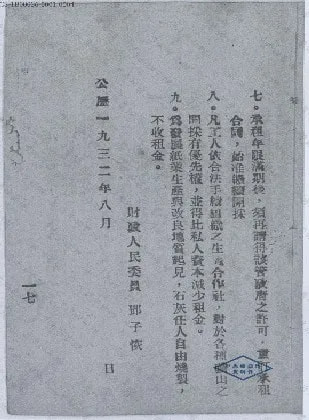 七。承租年限滿期後，須再請得該管政府之許可，重訂承租
合同，始准繼續開採。
八。凡工人依合法手續組織之生產合作社，對於各種礦山之
開採有優先權，並得比私人資本減少租金。
九。為發展紙業生產與改良地質起見，石灰任人自由燒製，
不收租金。
財政人民委員 鄧子恢
公歷一九三二年八月 日
一七